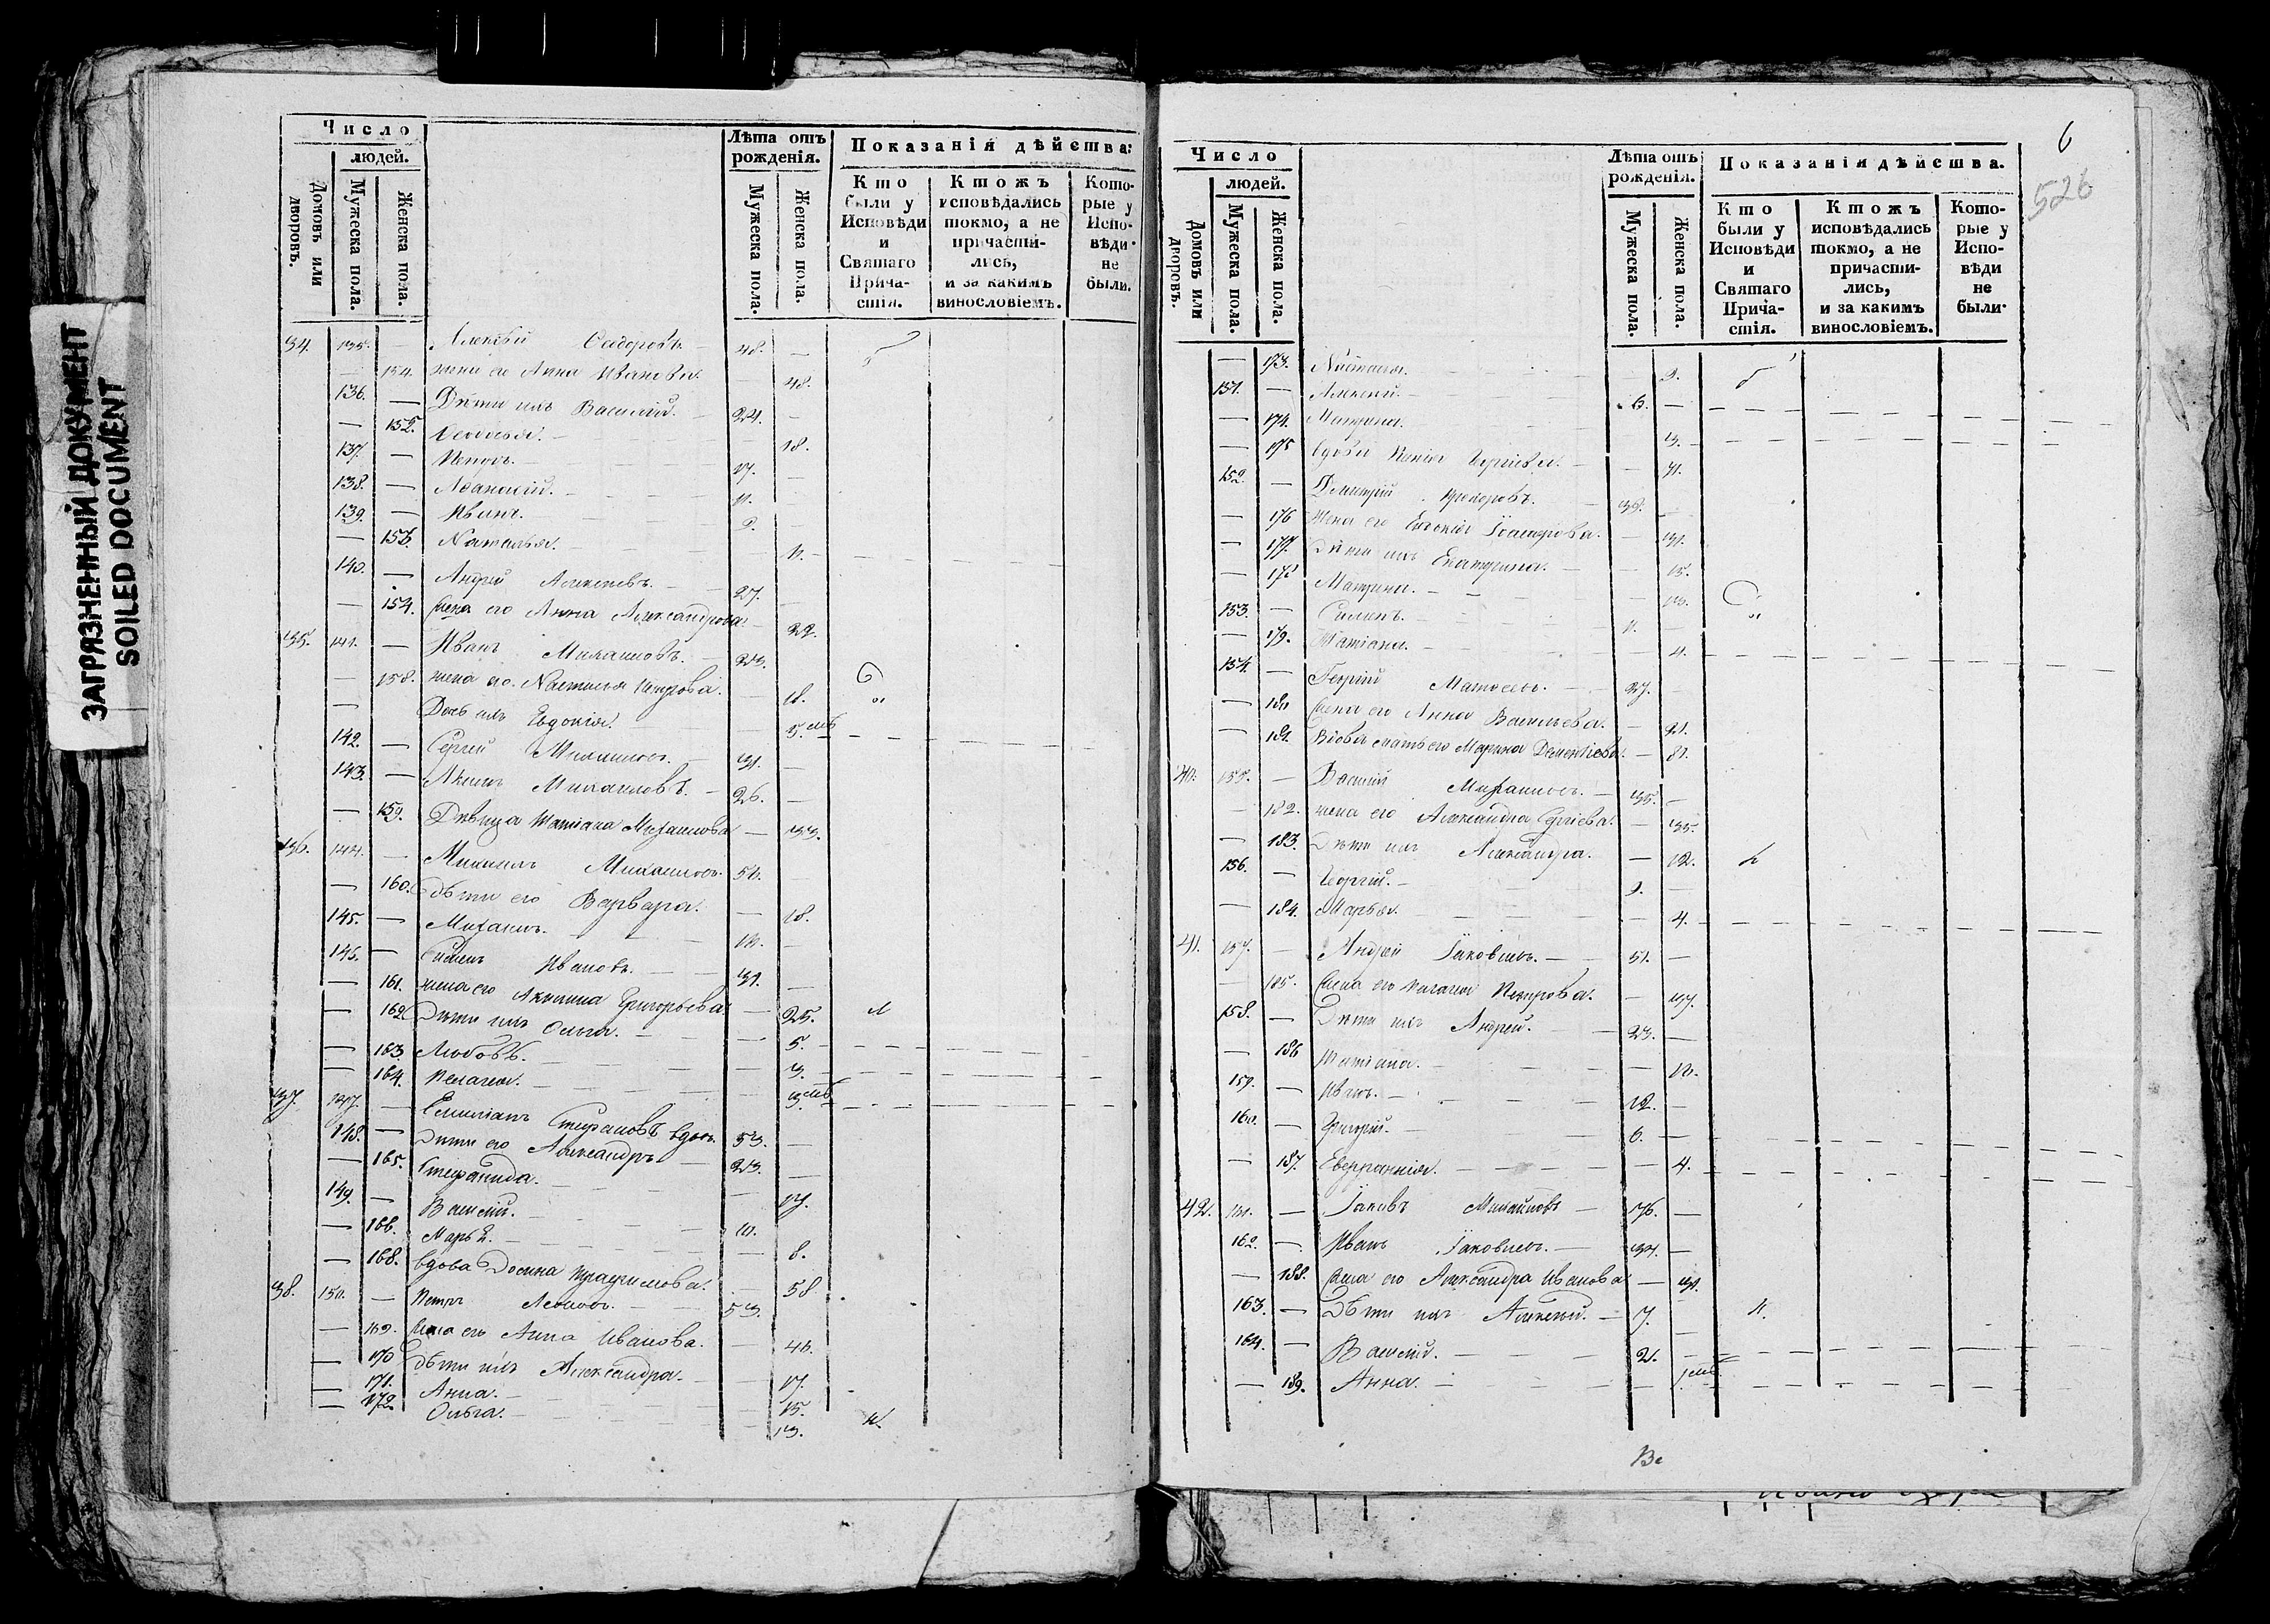 ЗАГРЯЗНЕННЫЙ ДОКУМЕНТ
SOILED DOCUMENT
Число
людей.
Домовъ или дворовъ.
Мужеска пола.
Женска пола.
Лѣта отъ рожденія.
Мужеска пола.
Женска пола.
Показанія дѣйства:
Кто были у Исповѣди и Святаго Прича-стія.
Ктожъ исповѣдались токмо, а не причасти-лись, и за какимъ винословіемъ.
Кото-рые у Испо-вѣди не были.
34. 135. — Алексѣй Сидоровъ 48. —
жена его Анна Иванова. 48.
136. — Дѣти ихъ Василій. 24. —
— 152. 18.
137. — Петръ. 17. —
138. — Аѳанасій. 11.
139. — Иванъ. 9.
— 153. Наталья. 11.
140. — Андрей Алексѣевъ. 27. —
— 154. Жена его Анна Александрова. 22.
35. 141. — Иванъ Михаиловъ. 23.
— 158. жена его Настасья Петрова. 18.
— Дочь ихъ Евдокія. 5.
142. — Сергѣй Михаиловъ. 31. —
143. — Михаиловъ. 26. —
— 159. Дѣвица Татіана Михаилова — 33.
36. 144. — Михаилъ Михаиловъ. 50. —
— 160. дѣти его Варвара. — 18.
145. — Михаилъ. —
146. — Семенъ Ивановъ. 31. —
— 161. жена его Акилина Григорьева — 25.
— 162. Дѣти ихъ Ольга. — 5.
— 163. Любовь. — 3.
— 164. Пелагея. — 3.
37. 147. — Емиліанъ Стефановъ вдовъ. 53. —
148. — Дѣти его Александръ. 23. —
— 165. Стефанида. — 17.
149. — Василій. 10.
— 166. Марья. — 8.
— 168. вдова Трофимова. — 58
38. 150. — Петръ 53.
— 169. Жена его Анна Иванова. — 46.
— 170 Дѣти ихъ Александра. — 17.
— 171. Анна. — 15.
— 172. Ольга. — 13.
6
526
Число
людей.
Домовъ или дворовъ.
Мужеска пола.
Женска пола.
Лѣта отъ рожденія.
Мужеска пола.
Женска пола.
Показанія дѣйства.
Кто были у Исповѣди и Святаго Прича-стія.
Ктожъ исповѣдались токмо, а не причасти-лись, и за какимъ винословіемъ.
Кото-рые у Испо-вѣди не были.
— 173. Настасья. — 9.
151. — Алексѣй. 6. —
— 174. Матрена. 3.
— 175 вдова Сергіева. — 71.
152. — Димитрій Ѳедоровъ. 38. —
— 176 Жена его Евдокія — 31.
— 177. Дѣти ихъ Екатерина. — 15.
— 178 Матрена. — 13.
153. — Семенъ. 11. —
— 179. Татіана. — 4.
154. — Георгій Матвеевъ. 27. —
— 180 Жена его Анна Васильева. — 21.
— 181. Вдова мать его Марина Дементіева. — 81.
40. 155. — Василій Михаиловъ. — 35. —
— 182. жена его Александра Сергіева. — 35.
— 183. Дѣти ихъ Александра. — 12.
156. — Георгій. 9. —
— 184. Марья. — 4.
41. 157. — Андрей Іаковлевъ. — 51. —
— 185. Жена его Пелагея Петрова. — 47.
158. — Дѣти ихъ Андрей. — 23. —
— 186 Татіана. —
159. — Иванъ. — 12. —
160. — Григорій. 6. —
— 187. — 4.
42. 161. — Іаковъ Михаиловъ — 76. —
162. — Иванъ Іаковлевъ. — 34. —
— 188. Жена его Александра Иванова — 31.
163. — Дѣти ихъ Алексѣй. — 7. —
164. — Василій. 2.
— 189. Анна. — 1
Ве